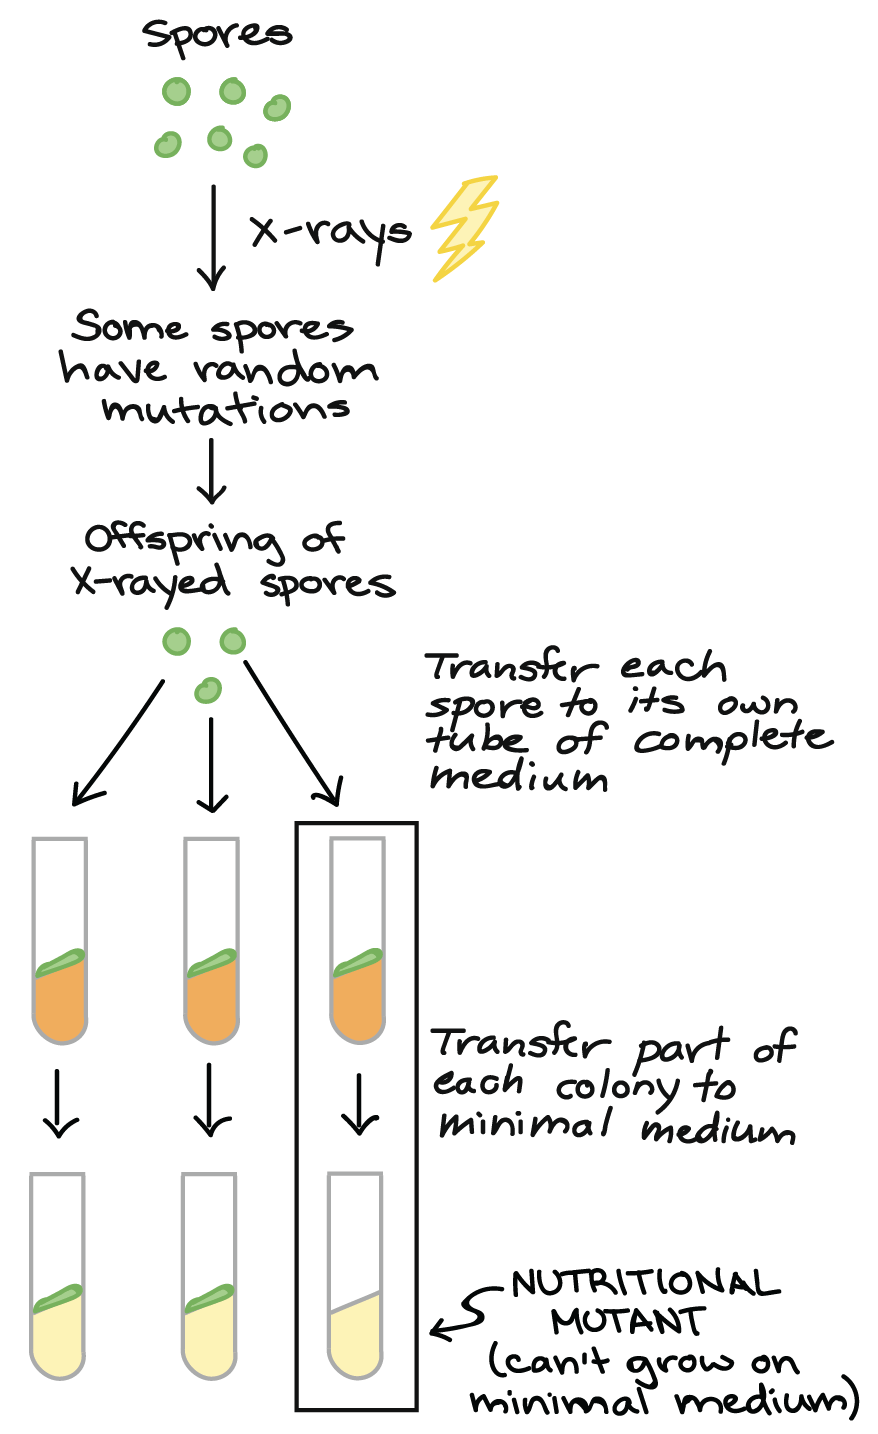 Spores
X-rays
Some spores
have random
mutations
Offspring of
X-rayed spores
Transfer each
spore to its own
tube of complete
medium
Transfer part of
each colony to
minimal medium
NUTRITIONAL
MUTANT
(can't grow on
minimal medium)